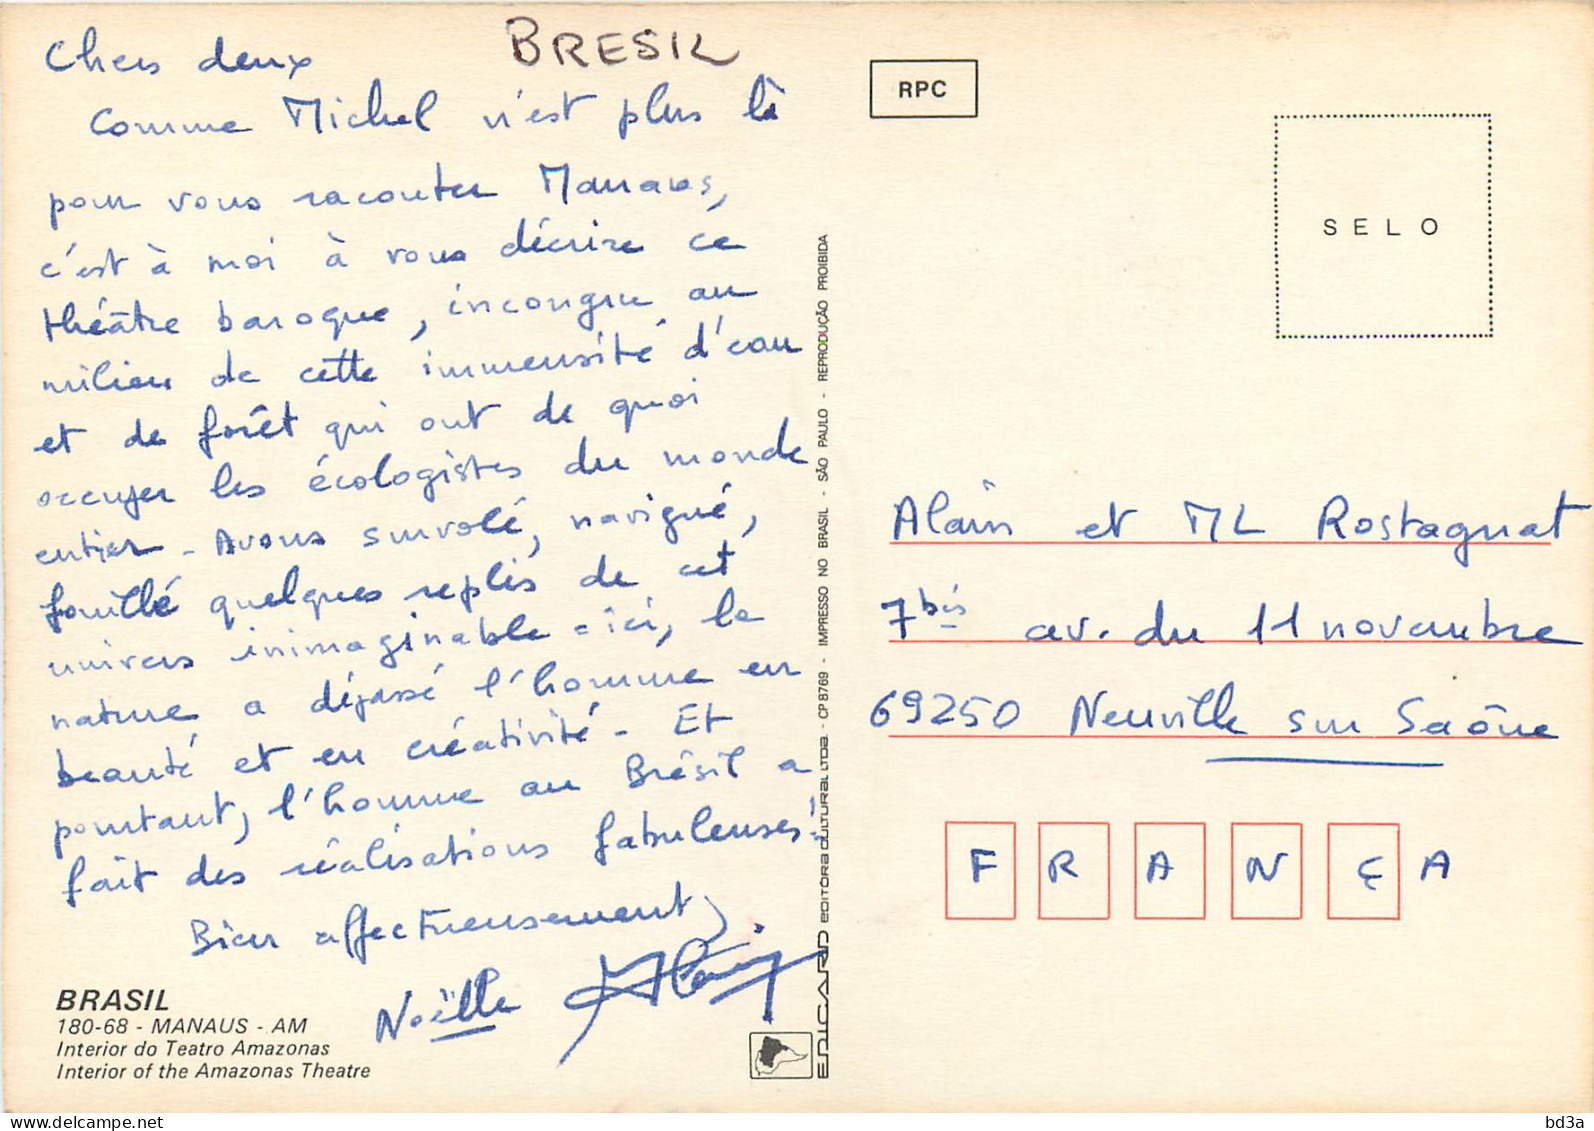 BRESIL
Chers deux
Comme Michel n'est plus là
pour vous raconter Manaus,
c'est à moi à vous décrire ce
théâtre baroque, incongru au
milieu de cette immensité d'eau
et de forêt qui ont de quoi
occuper les écologistes du monde
entier - Avons survolé, navigué,
fouillé quelques replis de cet
univers inimaginable : ici, la
nature a dépassé l'homme en
beauté et en créativité - Et
pourtant, l'homme au Brésil a
fait des réalisations fabuleuses !
Bien affectueusement,
Noëlle
BRASIL
180-68 - MANAUS - AM
Interior do Teatro Amazonas
Interior of the Amazonas Theatre
EDICARD EDITORA CULTURAL LTDA. - CP 8769 - IMPRESSO NO BRASIL - SÃO PAULO - REPRODUÇÃO PROIBIDA
RPC
SELO
Alain et ML Rostagnat
7 bis av. du 11 novembre
69250 Neuville sur Saône
FRANÇA
delcampe.net
bd3a